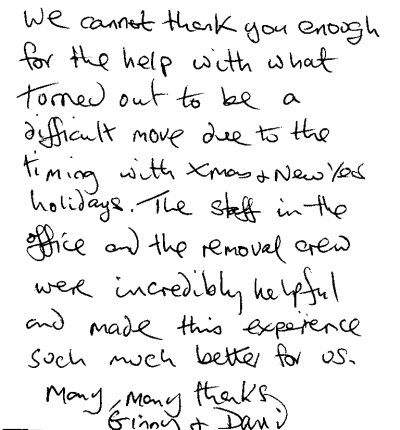 We cannot thank you enough
for the help with what
turned out to be a
difficult move due to the
timing with Xmas + New Year
holidays. The staff in the
office and the removal crew
were incredibly helpful
and made this experience
such much better for us.
Many, many thanks
Ginny + David